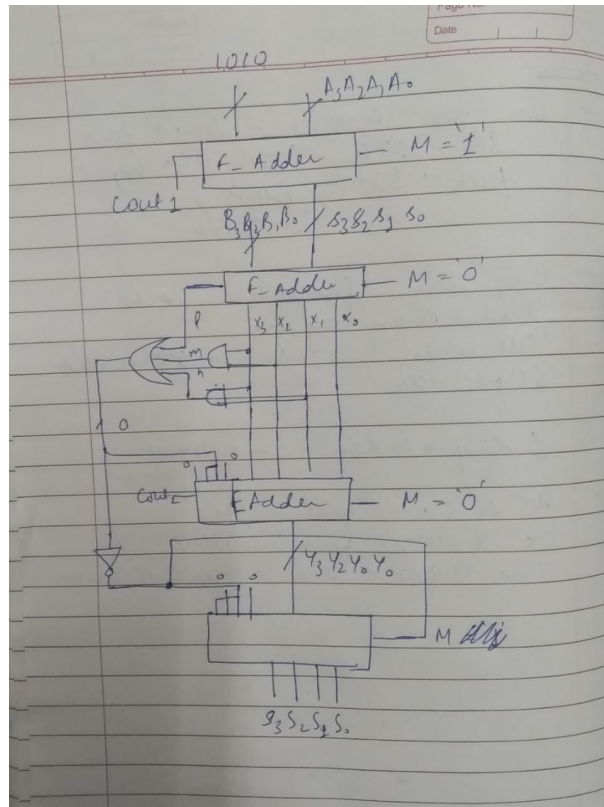 Page No.
Date
1010
A3 A2 A1 A0
F_Adder
M = '1'
Cout1
B3 B2 B1 B0
S3 S2 S1 S0
F_Adder
M = '0'
P
X3 X2 X1 X0
m
n
0
0 0
Cout2
F Adder
M = '0'
Y3 Y2 Y0 Y0
0 0
M
S3 S2 S1 S0